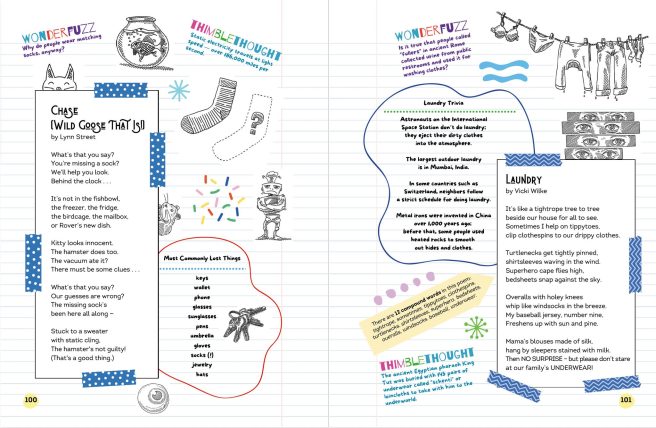 WONDERFUZZ
Why do people wear matching
socks, anyway?
THIMBLETHOUGHT
Static electricity travels at light
speed — over 186,000 miles per
second.
Chase
(Wild Goose That Is!)
by Lynn Street
What's that you say?
You're missing a sock?
We'll help you look.
Behind the clock . . .
It's not in the fishbowl,
the freezer, the fridge,
the birdcage, the mailbox,
or Rover's new dish.
Kitty looks innocent.
The hamster does too.
The vacuum ate it?
There must be some clues . . .
What's that you say?
Our guesses are wrong?
The missing sock's
been here all along –
Stuck to a sweater
with static cling,
The hamster's not guilty!
(That's a good thing.)
?
Most Commonly Lost Things
keys
wallet
phone
glasses
sunglasses
pens
umbrella
gloves
socks (!)
jewelry
hats
100
WONDERFUZZ
Is it true that people called
"fullers" in ancient Rome
collected urine from public
restrooms and used it for
washing clothes?
Laundry Trivia
Astronauts on the International
Space Station don't do laundry;
they eject their dirty clothes
into the atmosphere.
The largest outdoor laundry
is in Mumbai, India.
In some countries such as
Switzerland, neighbors follow
a strict schedule for doing laundry.
Metal irons were invented in China
over 1,000 years ago;
before that, some people used
heated rocks to smooth
out hides and clothes.
There are 13 compound words in this poem:
tightrope, sometimes, tippytoes, clothespins,
turtlenecks, shirtsleeves, superhero, bedsheets,
overalls, windsocks, baseball, underwear.
THIMBLETHOUGHT
The ancient Egyptian pharaoh King
Tut was buried with 145 pairs of
underwear called "schenti" or
loincloths to take with him to the
underworld.
Laundry
by Vicki Wilke
It's like a tightrope tree to tree
beside our house for all to see.
Sometimes I help on tippytoes,
clip clothespins to our drippy clothes.
Turtlenecks get tightly pinned,
shirtsleeves waving in the wind.
Superhero cape flies high,
bedsheets snap against the sky.
Overalls with holey knees
whip like windsocks in the breeze.
My baseball jersey, number nine,
Freshens up with sun and pine.
Mama's blouses made of silk,
hang by sleepers stained with milk.
Then NO SURPRISE – but please don't stare
at our family's UNDERWEAR!
101